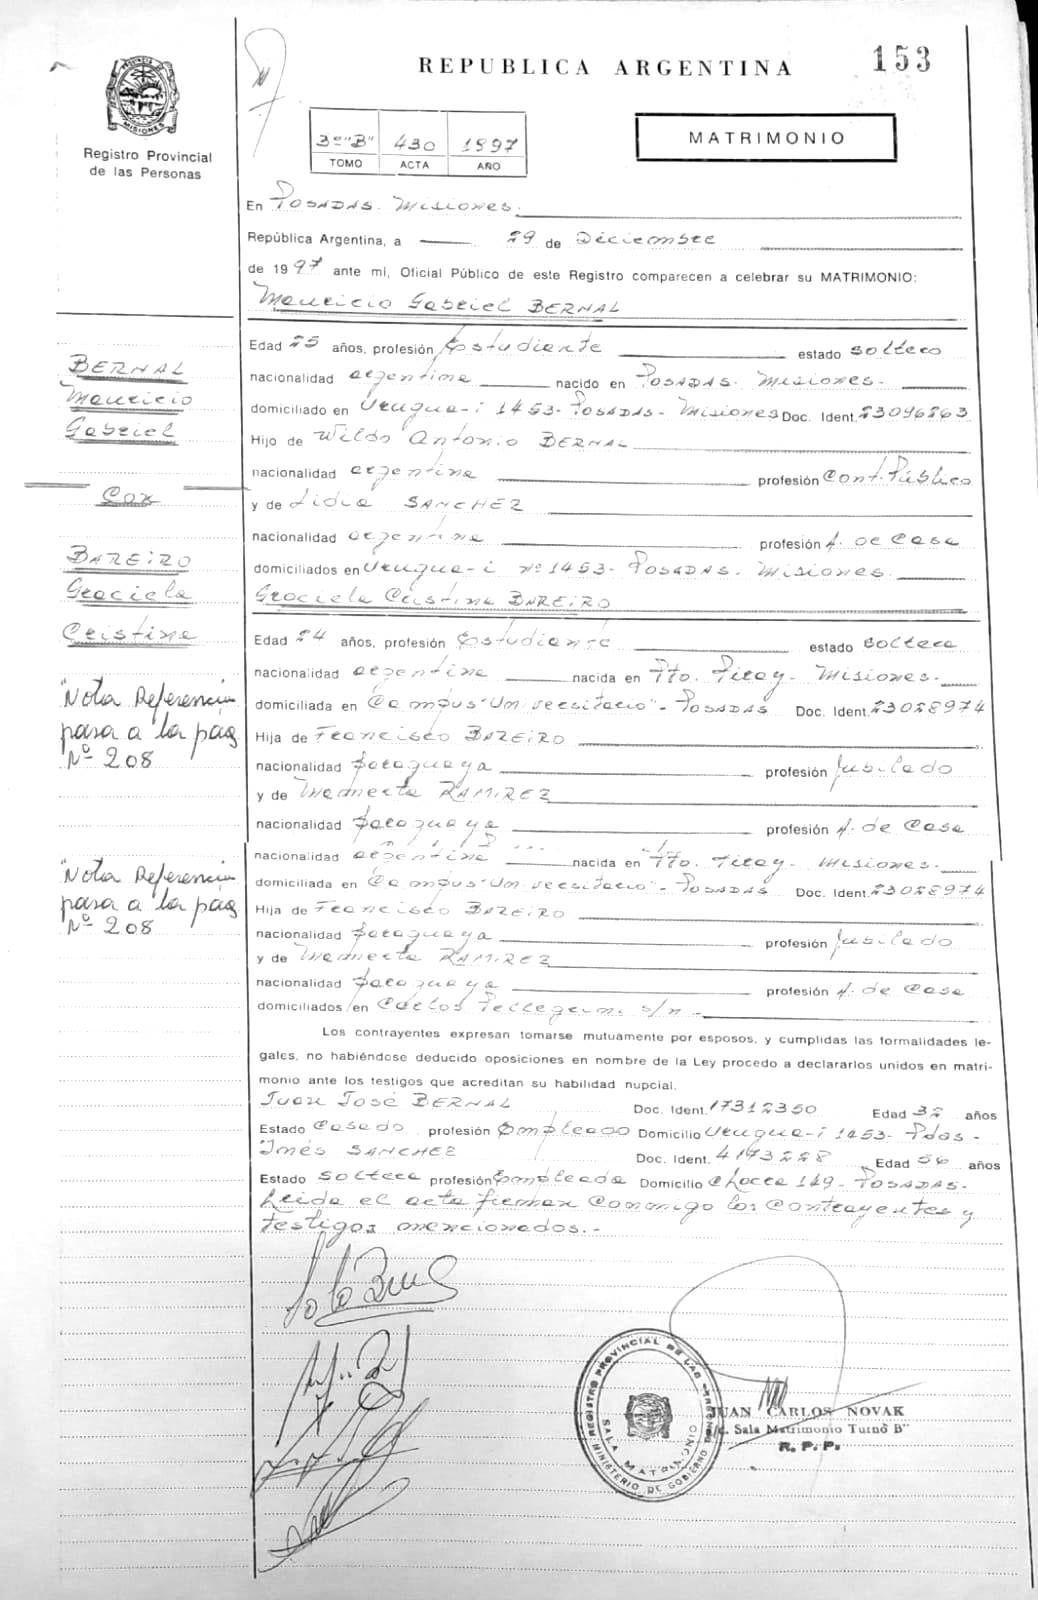 REPUBLICA ARGENTINA
153
PROVINCIA DE
MISIONES
Registro Provincial
de las Personas
3º "B" 430 1997
TOMO ACTA AÑO
MATRIMONIO
En POSADAS. Misiones.
República Argentina, a 29 de Diciembre
de 1997 ante mí, Oficial Público de este Registro comparecen a celebrar su MATRIMONIO:
Mauricio Gabriel BERNAL
Edad 25 años, profesión Estudiante estado soltero
nacionalidad argentina nacido en POSADAS. Misiones.
domiciliado en Urugua-i 1453- POSADAS- Misiones Doc. Ident. 23096863
Hijo de Wildo Antonio BERNAL
nacionalidad argentina profesión Cont. Público
y de Lidia SANCHEZ
nacionalidad argentina profesión A. de Casa
domiciliados en Urugua-i nº 1453- POSADAS. Misiones.
Graciela Cristina BAREIRO
Edad 24 años, profesión Estudiante estado soltera
nacionalidad argentina nacida en Pto. Piray- Misiones.
domiciliada en Campus "Universitario"- POSADAS Doc. Ident. 23028974
Hija de Francisco BAREIRO
nacionalidad paraguaya profesión Jubilado
y de RAMIREZ
nacionalidad paraguaya profesión A. de Casa
BERNAL
Mauricio
Gabriel
Con
BAREIRO
Graciela
Cristina
"Nota Referencia
pasa a la pag
Nº 208
nacionalidad argentina nacida en Pto. Piray- Misiones.
domiciliada en Campus "Universitario"- POSADAS Doc. Ident. 23028974
Hija de Francisco BAREIRO
nacionalidad paraguaya profesión Jubilado
y de RAMIREZ
nacionalidad paraguaya profesión A. de Casa
domiciliados en Carlos Pellegrini s/n-
"Nota Referencia
pasa a la pag
Nº 208
Los contrayentes expresan tomarse mutuamente por esposos, y cumplidas las formalidades le-
gales, no habiéndose deducido oposiciones en nombre de la Ley procedo a declararlos unidos en matri-
monio ante los testigos que acreditan su habilidad nupcial.
Juan José BERNAL Doc. Ident. 17312350 Edad 32 años
Estado Casado profesión Empleado Domicilio Urugua-i 1453- Pdas-
Inés SANCHEZ Doc. Ident. 4173228 Edad 56 años
Estado soltera profesión Empleada Domicilio 149- POSADAS-
Leida el acta firman Conmigo los Contrayentes y
testigos mencionados.-
REGISTRO PROVINCIAL DE LAS PERSONAS
SALA MATRIMONIO
MINISTERIO DE GOBIERNO
JUAN CARLOS NOVAK
Sala Matrimonio Turno B"
R. P. P.